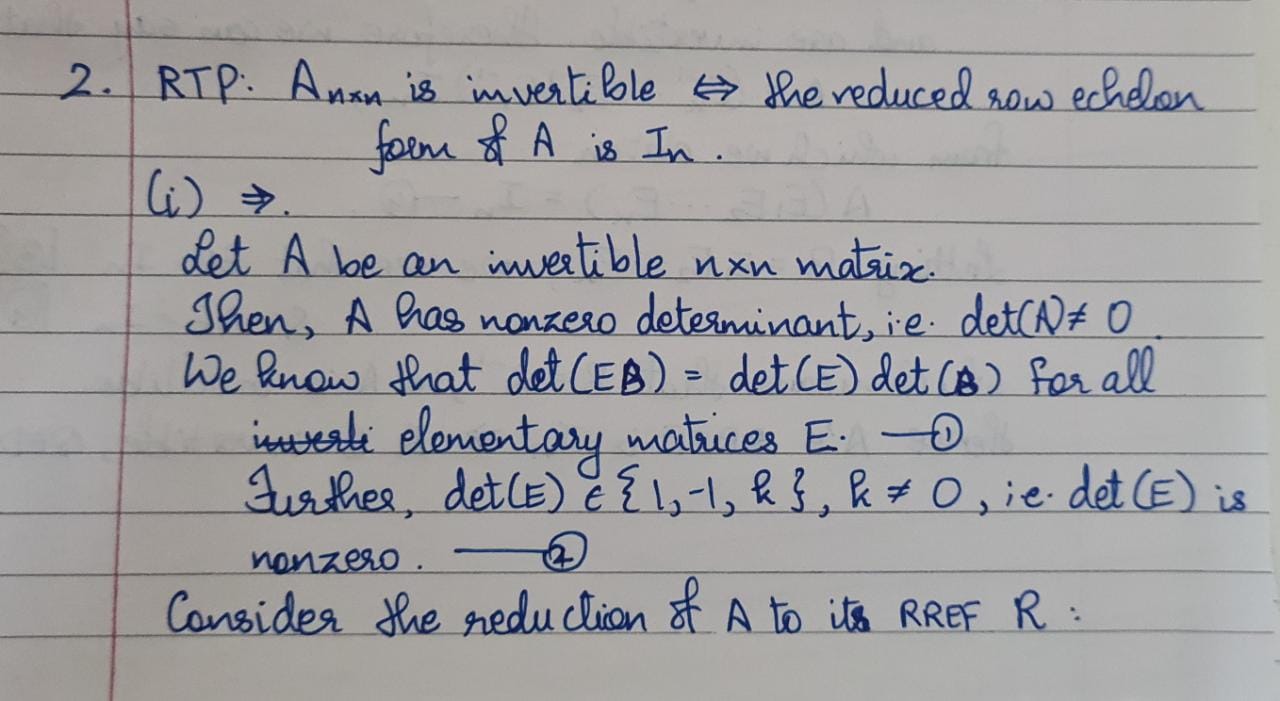 2. RTP: Anxn is invertible ⇔ the reduced row echelon
form of A is In.
(i) ⇒.
Let A be an invertible nxn matrix.
Then, A has nonzero determinant, i.e. det(A) ≠ 0.
We know that det(EB) = det(E) det(B) for all
elementary matrices E. —①
Further, det(E) ∈ {1, -1, k}, k ≠ 0, i.e. det(E) is
nonzero. —②
Consider the reduction of A to its RREF R: